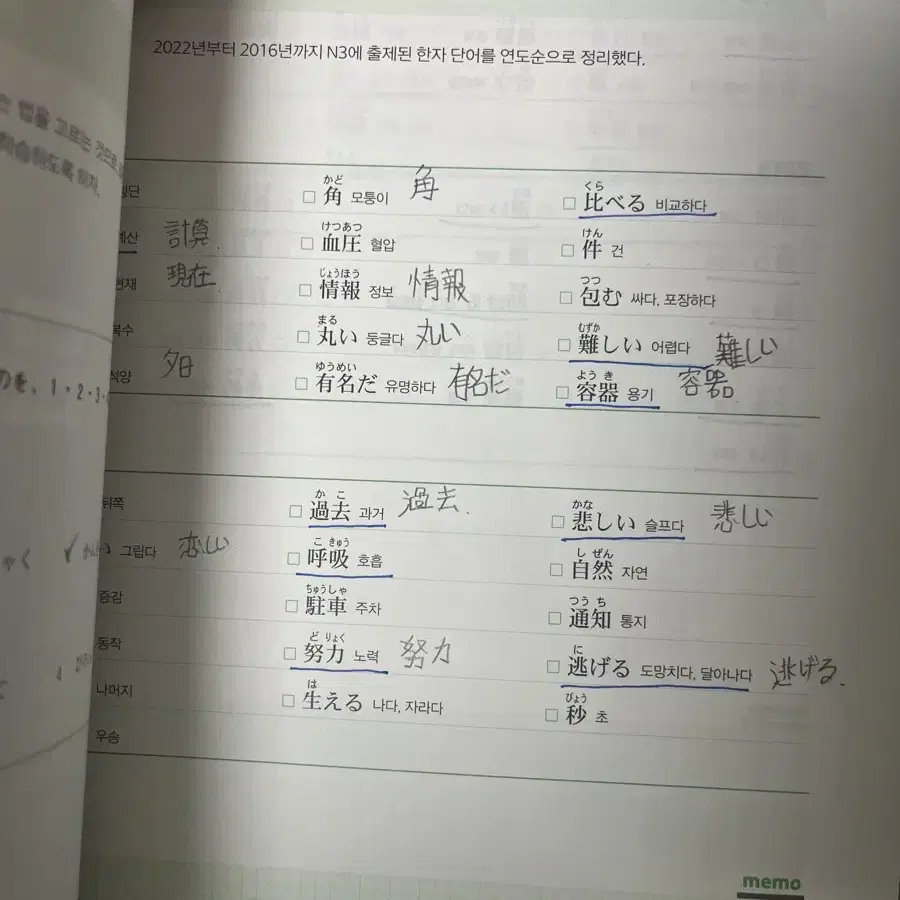 2022년부터 2016년까지 N3에 출제된 한자 단어를 연도순으로 정리했다.
かど くら
□ 角 모퉁이 角 □ 比べる 비교하다
けつあつ けん
계산 計算 □ 血圧 혈압 □ 件 건
じょうほう つつ
현재 現在 □ 情報 정보 情報 □ 包む 싸다, 포장하다
まる むずか
복수 □ 丸い 둥글다 丸い □ 難しい 어렵다 難しい
ゆうめい ようき
석양 夕日 □ 有名だ 유명하다 有名だ □ 容器 용기 容器
かこ かな
뒤쪽 □ 過去 과거 過去. □ 悲しい 슬프다 悲しい
こきゅう しぜん
그립다 恋しい □ 呼吸 호흡 □ 自然 자연
ちゅうしゃ つうち
증감 □ 駐車 주차 □ 通知 통지
どりょく に
동작 □ 努力 노력 努力 □ 逃げる 도망치다, 달아나다 逃げる.
は びょう
나머지 □ 生える 나다, 자라다 □ 秒 초
우송
memo